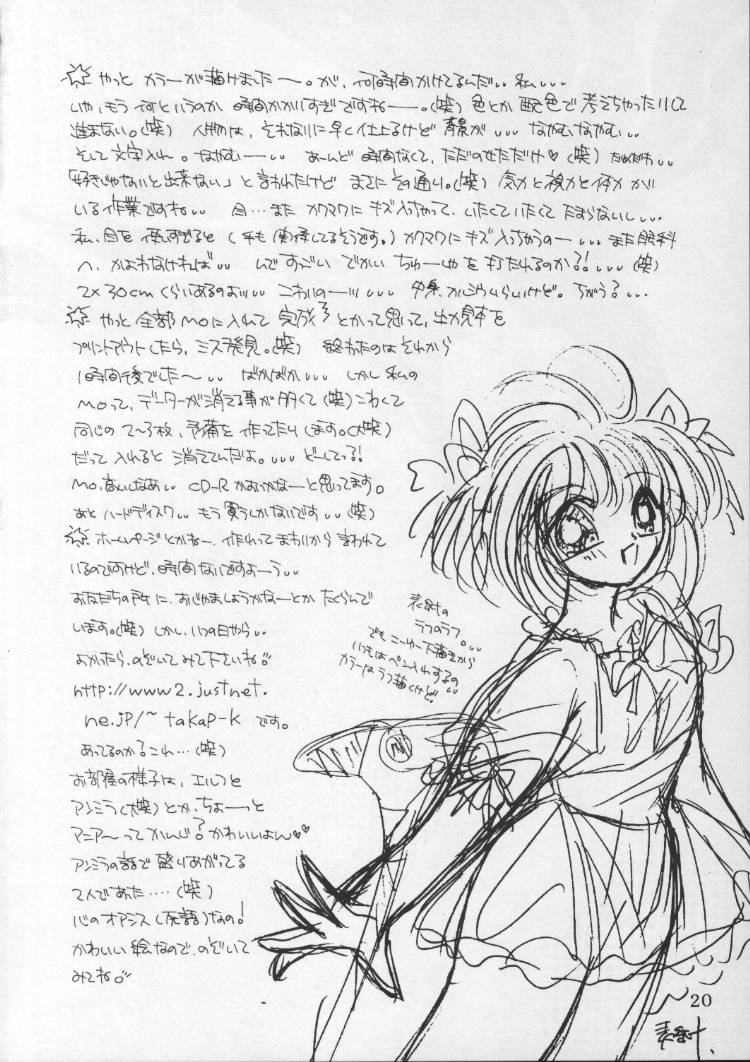 ☆やっと カラーが描けました〜。が、何時間かけてるんだ‥‥私‥‥
いや、もう 何というのか 時間かかりすぎですねー。(笑) 色とか 配色で 考えちゃったりして
進まない。(笑) 人物は、それなりに早く仕上るけど 背景が‥‥ なやむなやむ‥‥
そして文字入れ。なやむー‥‥ あーんど 時間なくて、ただのせただけ♥(笑) だめだわ‥‥
「好きじゃないと出来ない」と 言われたけど まさに その通り。(笑) 気力と視力と体力 が
いる作業ですね‥‥ 目…また カクマクに キズ入っちゃって、いたくていたくて たまらないし‥‥
私、目を 使いすぎると (手も 関係してるそうです。) カクマクに キズ入っちゃうのー‥‥ また眼科
へ、かよわなければ‥‥ んで すっごい でかい ちゅーしゃを 打たれるのか?!‥‥(笑)
2×30cmくらいあるのよ‥‥ こわいのー‥‥ 中身、かわいらしいけど。ちがう?‥‥
☆やっと 全部 MOに入れて 完成 とかって思って、出力見本を
プリントアウトしたら、ミス発見。(笑) 終わったのは それから
1時間後でした〜‥‥ ばかばか‥‥ しかし 私の
MOって、データーが消える事が多くて(笑)こわくて
同じの 2〜3枚、予備を 作ってたりします。(大笑)
だって 入れると 消えてんだよ。‥‥どーしてっ!
MO、高いしなあ‥‥ CD-R かおいかなーと思ってます。
あと ハードディスク‥‥ もう買うしかないです‥‥(笑)
☆ホームページとかねー、作れって まわりから 言われて
いるのですけど、時間ないですよーう‥‥
あなたちの所に、おじゃましようかなーとか たくらんで
います。(笑) しかし、いつの日やら‥‥
よかったら、のぞいて みて 下さいね
http://www2.justnet.
ne.jp/~takap-k です。
あってるのか? これ…(笑)
お部屋の様子は、エルフと
アンミラ(大笑)とか、ちょーっと
マニア〜って かんじ? かわいいよん♥♥
アンミラの話で 盛りあがってる
2人であった‥‥(笑)
心のオアシス(死語)なの!
かわいい 絵なので、のぞいて
みてね
表紙の
ラフのラフ。‥‥
でも ニーサー下描きから
いつもはペン入れするの
カラーはラフ描くけど。
20